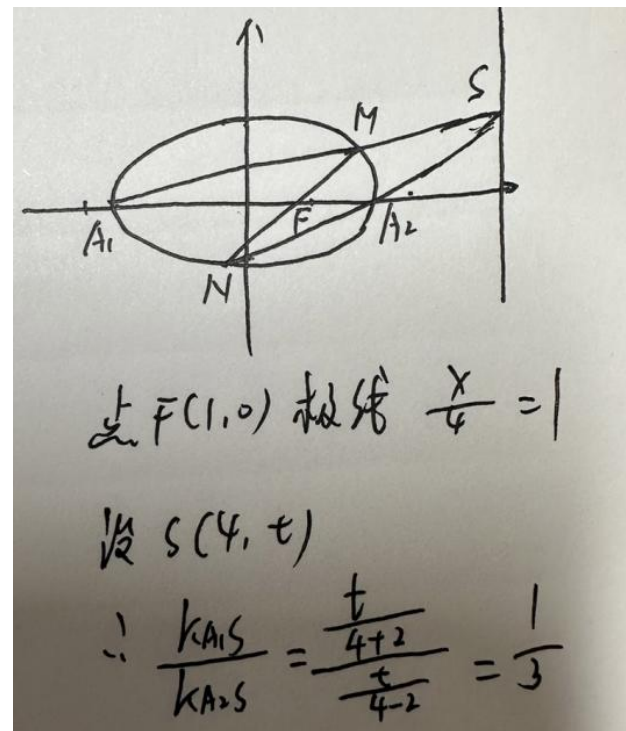 S
M
A₁ F A₂
N
点F(1,0) 极线 x/4 = 1
设 S(4, t)
∴ k_{A₁S}/k_{A₂S} = (t/(4+2))/(t/(4-2)) = 1/3